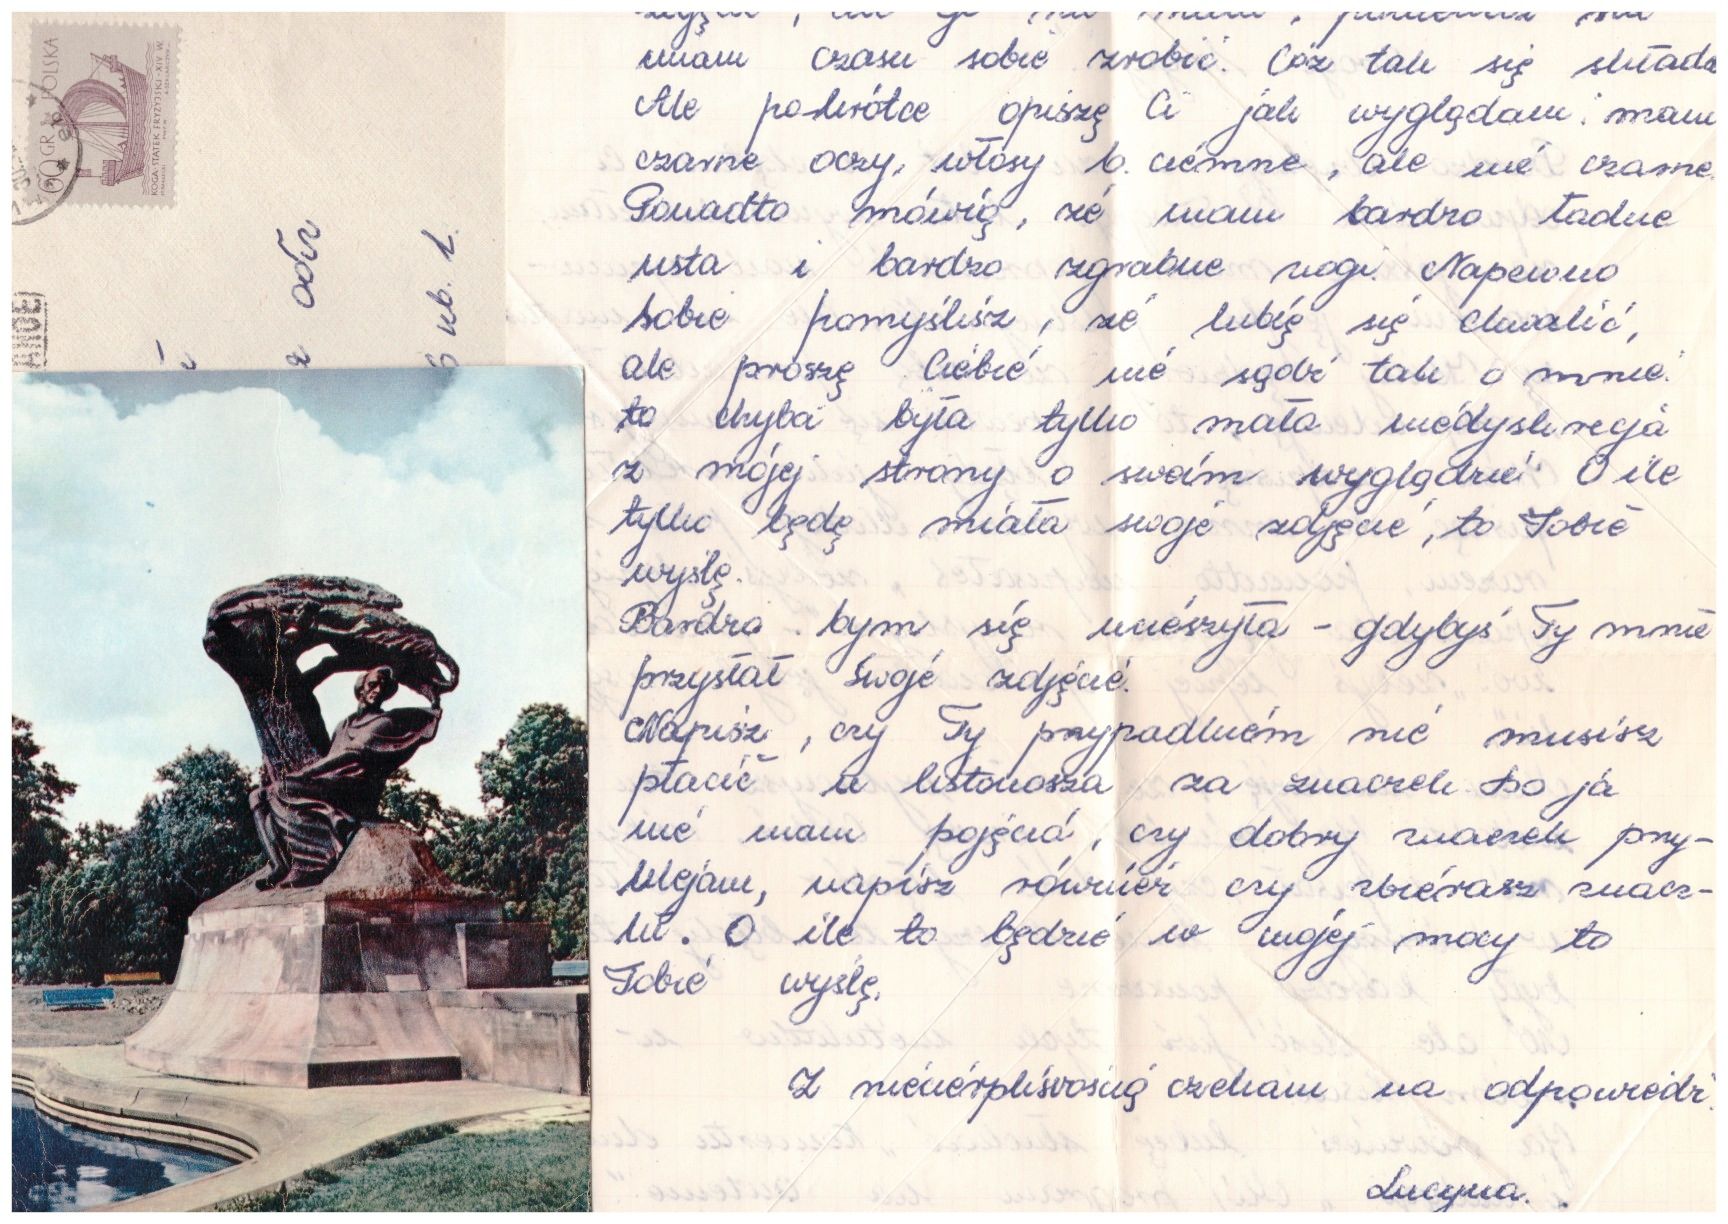 POLSKA
60 GR
KOGA-STATEK FRYZYJSKI-XIV W.
nb. 1.
mam czasu sobie zrobić. Cóż tak się składa
Ale pokrótce opiszę Ci jak wyglądam: mam
czarne oczy, włosy b. ciemne, ale nie czarne.
Ponadto mówią, że mam bardzo ładne
usta i bardzo zgrabne nogi. Napewno
sobie pomyślisz, że lubię się chwalić,
ale proszę Ciebie nie sądź tak o mnie.
to chyba była tylko mała niedyskrecja
z mojej strony o swoim wyglądzie. O ile
tylko będę miała swoje zdjęcie, to Tobie
wyślę.
Bardzo bym się ucieszyła - gdybyś Ty mnie
przysłał swoje zdjęcie.
Napisz, czy Ty przypadkiem nie musisz
płacić u listonosza za znaczek bo ja
nie mam pojęcia, czy dobry znaczek przy-
klejam, napisz również czy zbierasz znacz-
ki. O ile to będzie w mojej mocy to
Tobie wyślę.
Z niecierpliwością czekam na odpowiedź.
Lucyna.